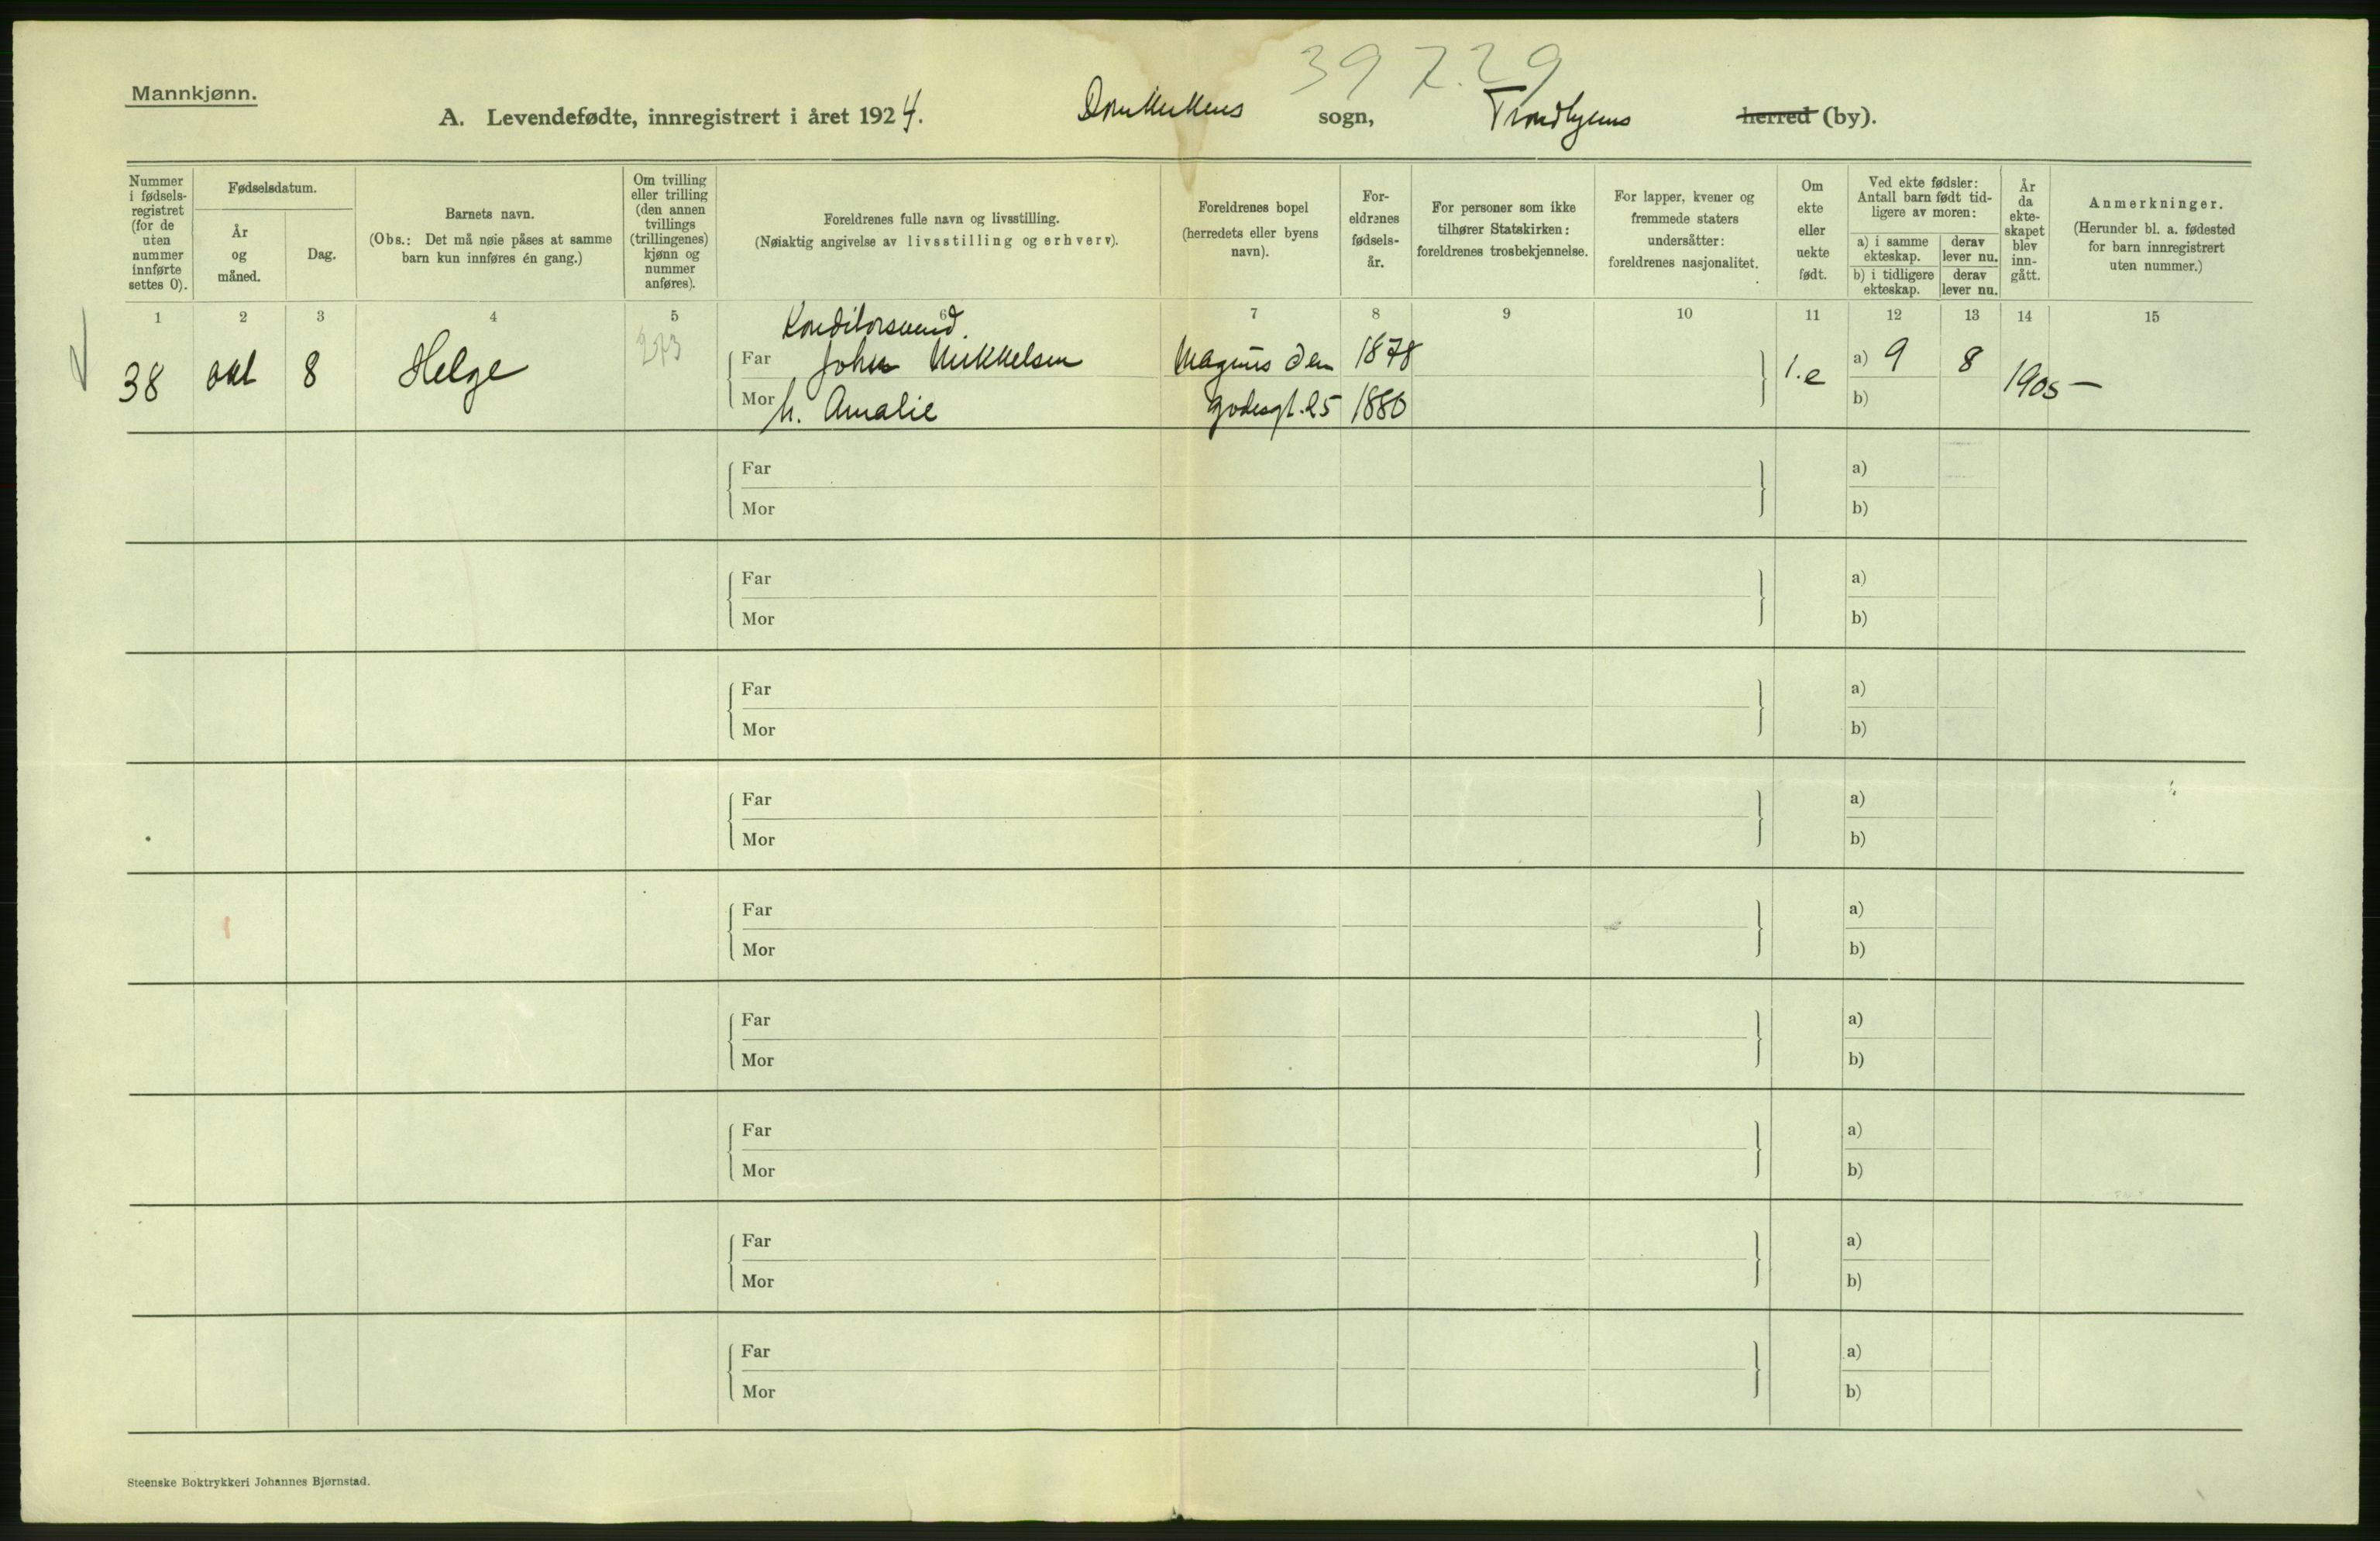 39 7.29
Mannkjønn.
A. Levendefødte, innregistrert i året 1924. Domkirkens sogn, Trondhjems herred (by).
Nummer i fødselsregistret (for de uten nummer innførte settes 0).
Fødselsdatum.
År og måned.
Dag.
Barnets navn.
(Obs.: Det må nøie påses at samme barn kun innføres én gang.)
Om tvilling eller trilling (den annen tvillings (trillingenes) kjønn og nummer anføres).
Foreldrenes fulle navn og livsstilling.
(Nøiaktig angivelse av livsstilling og erhverv).
Foreldrenes bopel (herredets eller byens navn).
Foreldrenes fødselsår.
For personer som ikke tilhører Statskirken: foreldrenes trosbekjennelse.
For lapper, kvener og fremmede staters undersåtter: foreldrenes nasjonalitet.
Om ekte eller uekte født.
Ved ekte fødsler: Antall barn født tidligere av moren:
a) i samme ekteskap.
derav lever nu.
b) i tidligere ekteskap.
derav lever nu.
År da ekteskapet blev inngått.
Anmerkninger.
(Herunder bl. a. fødested for barn innregistrert uten nummer.)
1 2 3 4 5 6 7 8 9 10 11 12 13 14 15
Konditorsvend.
38 okt 8 Helge 273 Far Johan Mikkelsen Magnus den 1878 1.e a) 9 8 1905 —
Mor h. Amalie godesgt. 25 1880 b)
Far a)
Mor b)
Far a)
Mor b)
Far a)
Mor b)
Far a)
Mor b)
Far a)
Mor b)
Far a)
Mor b)
Far a)
Mor b)
Far a)
Mor b)
Far a)
Mor b)
Steenske Boktrykkeri Johannes Bjørnstad.